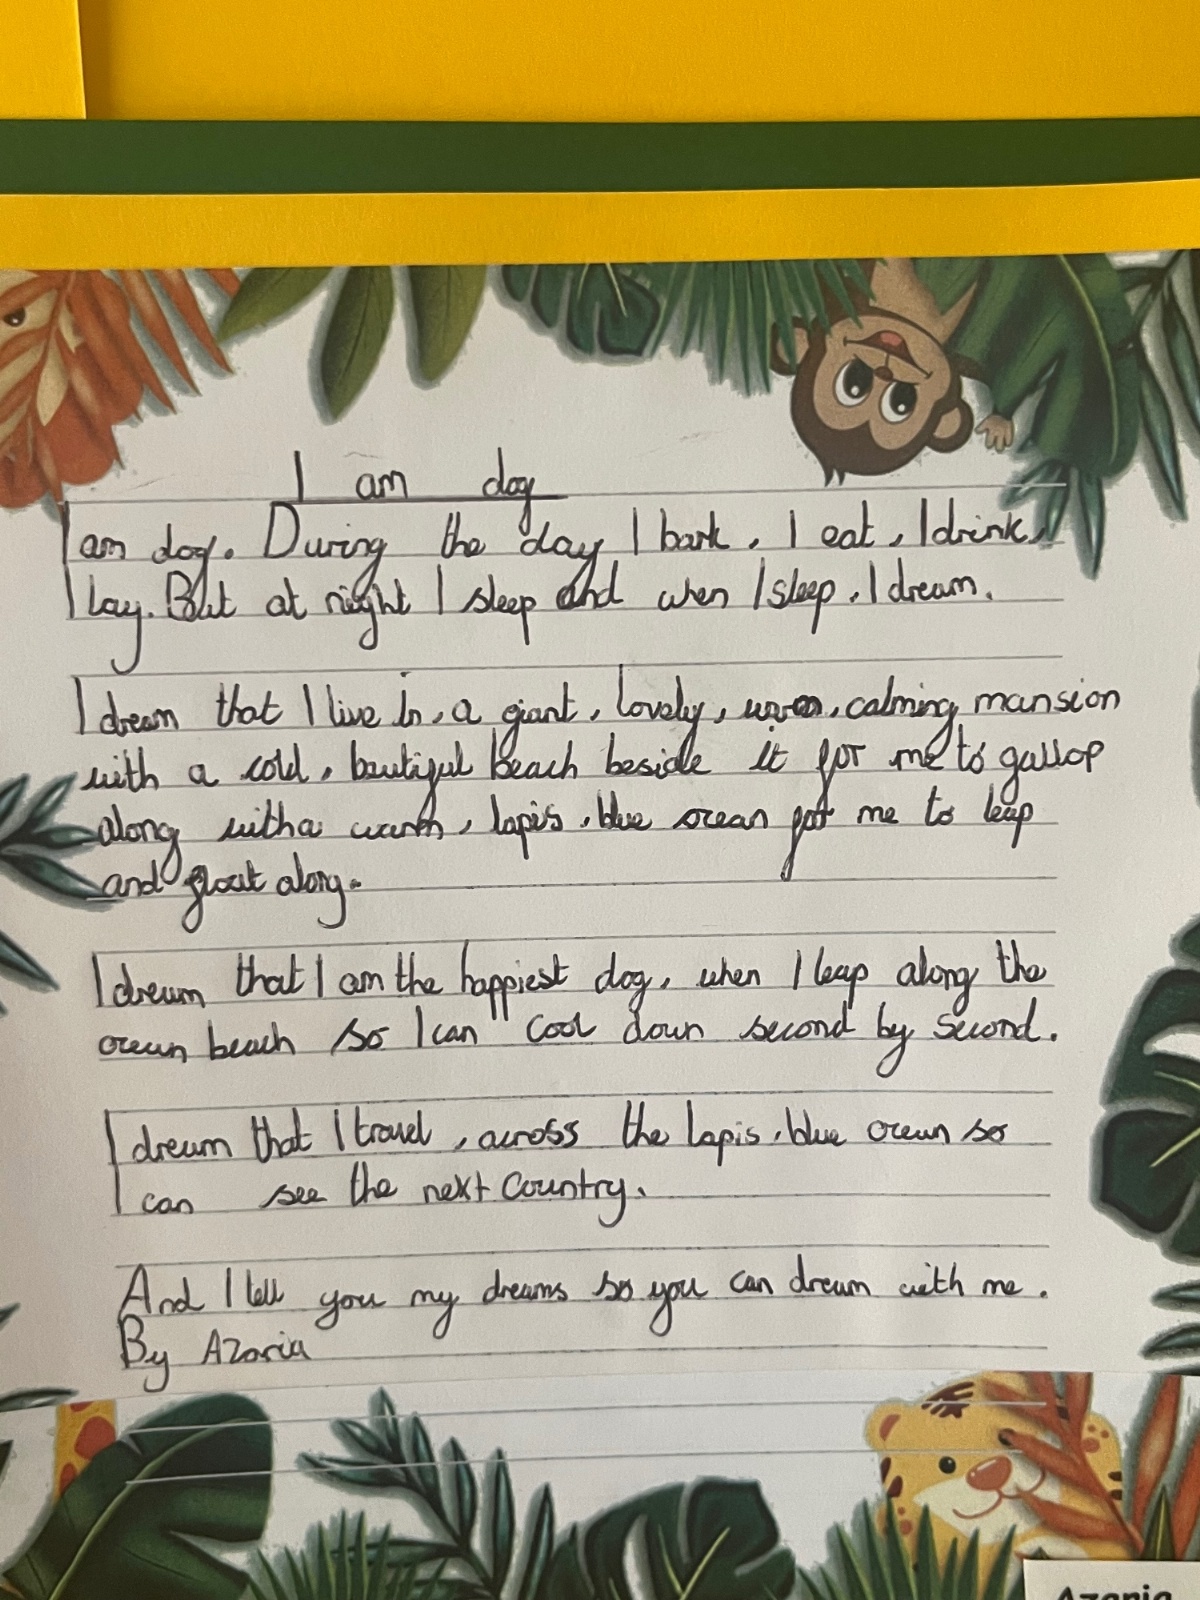 I am dog
I am dog. During the day I bark, I eat, I drink,
I lay. But at night I sleep and when I sleep, I dream.
I dream that I live in, a giant, lovely, calming mansion
with a cold, beutiful beach beside it for me to gallop
along with a warm, lapis, blue ocean for me to leap
and float along.
I dream that I am the happiest dog, when I leap along the
ocean beach so I can cool down second by second.
I dream that I travel, across the lapis, blue ocean so
I can see the next Country.
And I tell you my dreams so you can dream with me.
By Azaria
Azaria